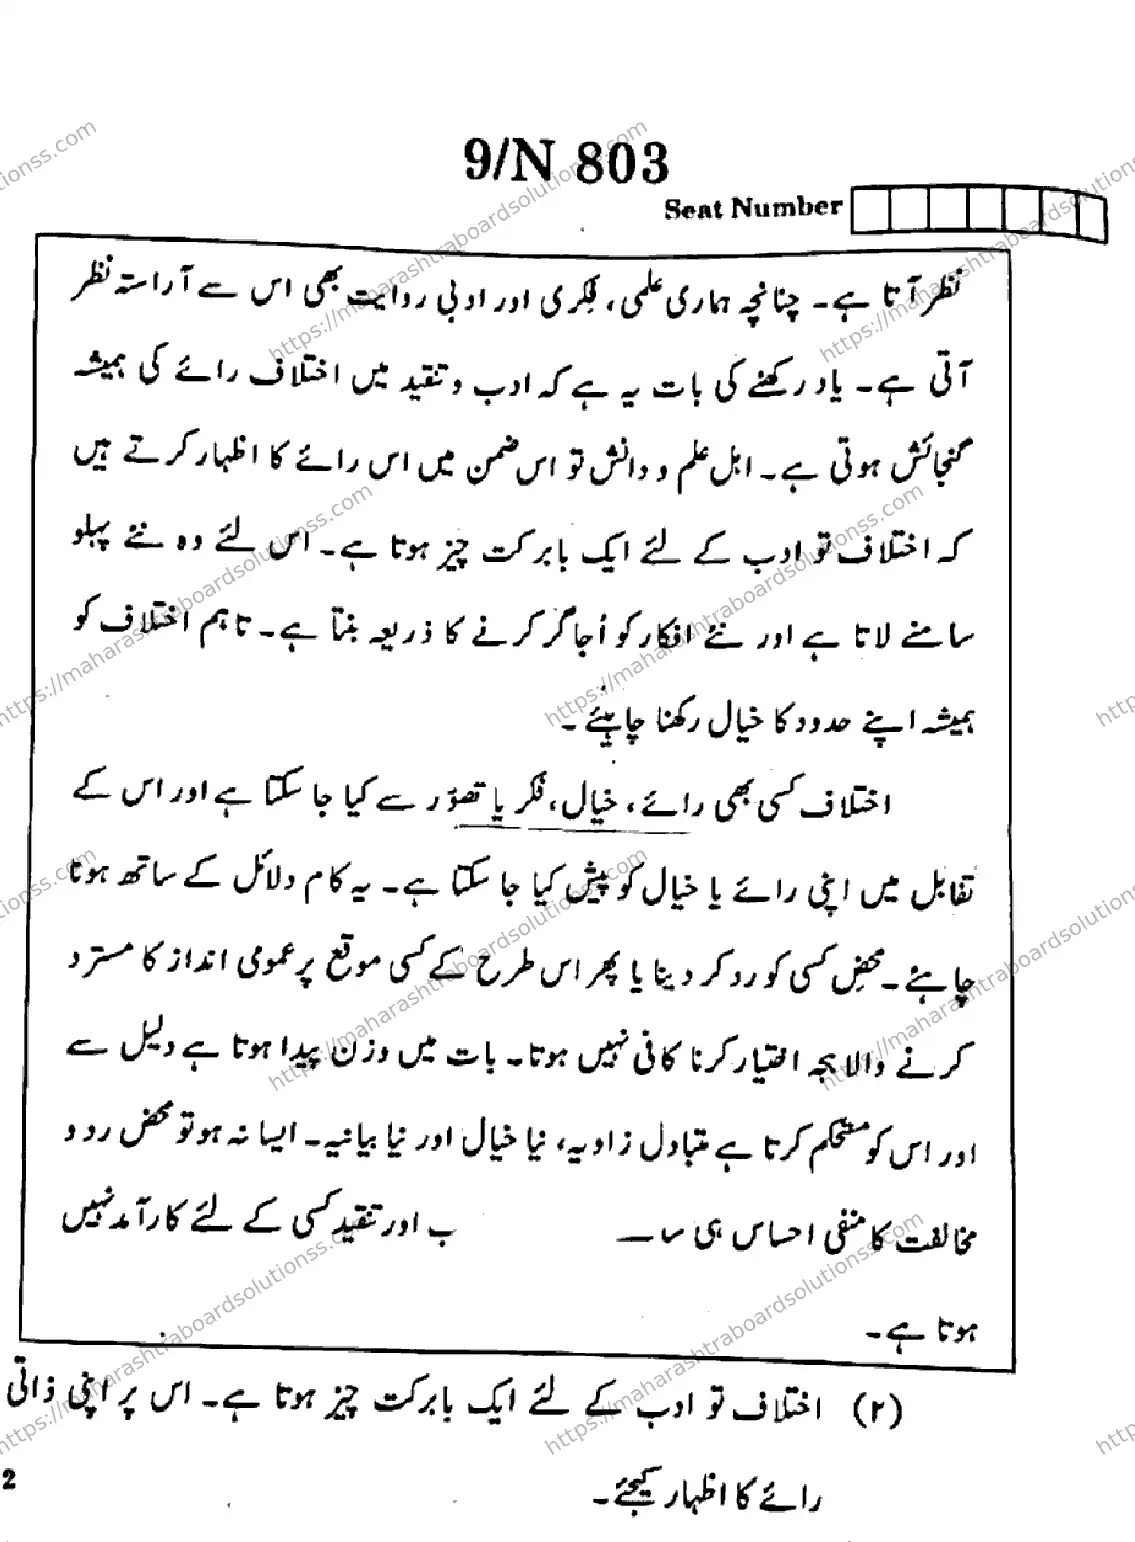 9/N 803
Seat Number
نظر آتا ہے۔ چنانچہ ہماری علمی، فکری اور ادبی روایت بھی اس سے آراستہ نظر
آتی ہے۔ یاد رکھنے کی بات یہ ہے کہ ادب و تنقید میں اختلاف رائے کی ہمیشہ
گنجائش ہوتی ہے۔ اہل علم و دانش تو اس ضمن میں اس رائے کا اظہار کرتے ہیں
کہ اختلاف تو ادب کے لئے ایک بابرکت چیز ہوتا ہے۔ اس لئے وہ نئے پہلو
سامنے لاتا ہے اور نئے افکار کو اُجاگر کرنے کا ذریعہ بنتا ہے۔ تاہم اختلاف کو
ہمیشہ اپنے حدود کا خیال رکھنا چاہیئے۔
اختلاف کسی بھی رائے، خیال، فکر یا تصوّر سے کیا جا سکتا ہے اور اس کے
تقابل میں اپنی رائے یا خیال کو پیش کیا جا سکتا ہے۔ یہ کام دلائل کے ساتھ ہوتا
چاہئے۔ محض کسی کو رد کر دینا یا پھر اس طرح کے کسی موقع پر عمومی انداز کا مسترد
کرنے والا لہجہ اختیار کرنا کافی نہیں ہوتا۔ بات میں وزن پیدا ہوتا ہے دلیل سے
اور اس کو مستحکم کرتا ہے متبادل زاویہ، نیا خیال اور نیا بیانیہ۔ ایسا نہ ہو تو محض رد و
مخالفت کا منفی احساس ہی اور تنقید کسی کے لئے کارآمد نہیں
ہوتا ہے۔
(۲) اختلاف تو ادب کے لئے ایک بابرکت چیز ہوتا ہے۔ اس پر اپنی ذاتی
رائے کا اظہار کیجئے۔
2
https://maharashtraboardsolutionss.com